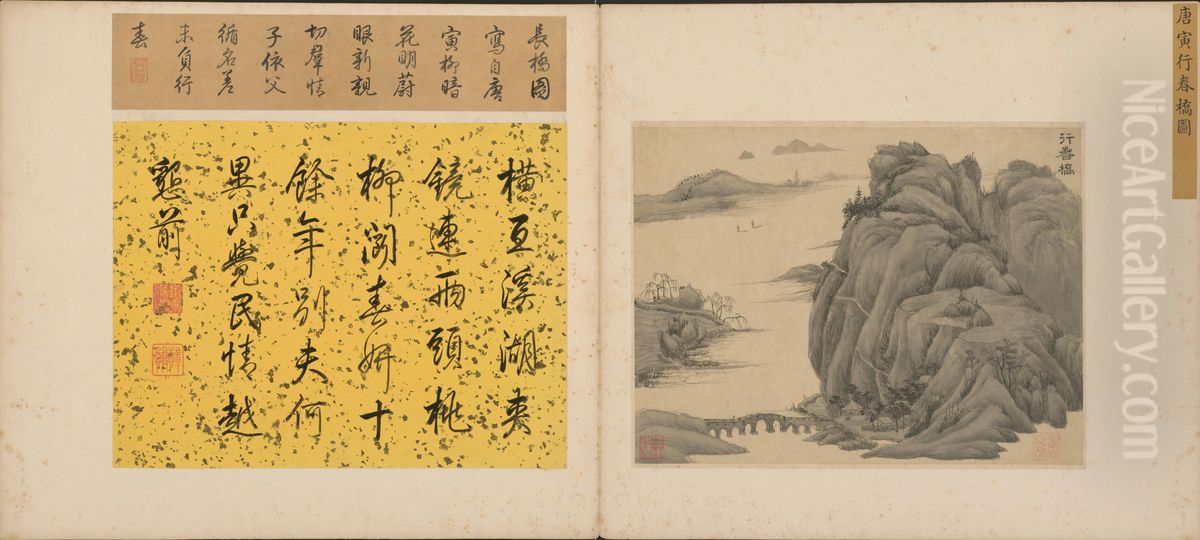 唐寅行春橋圖
行春橋
長橋圖
寫自唐
寅柳暗
花明蔚
眼新親
切羣情
子依父
循名差
未負行
春
橫亙溪湖夾
鏡連兩頭桃
柳鬪春妍十
餘年別夫何
異只覺民情越
懇前
NiceArtGallery.com